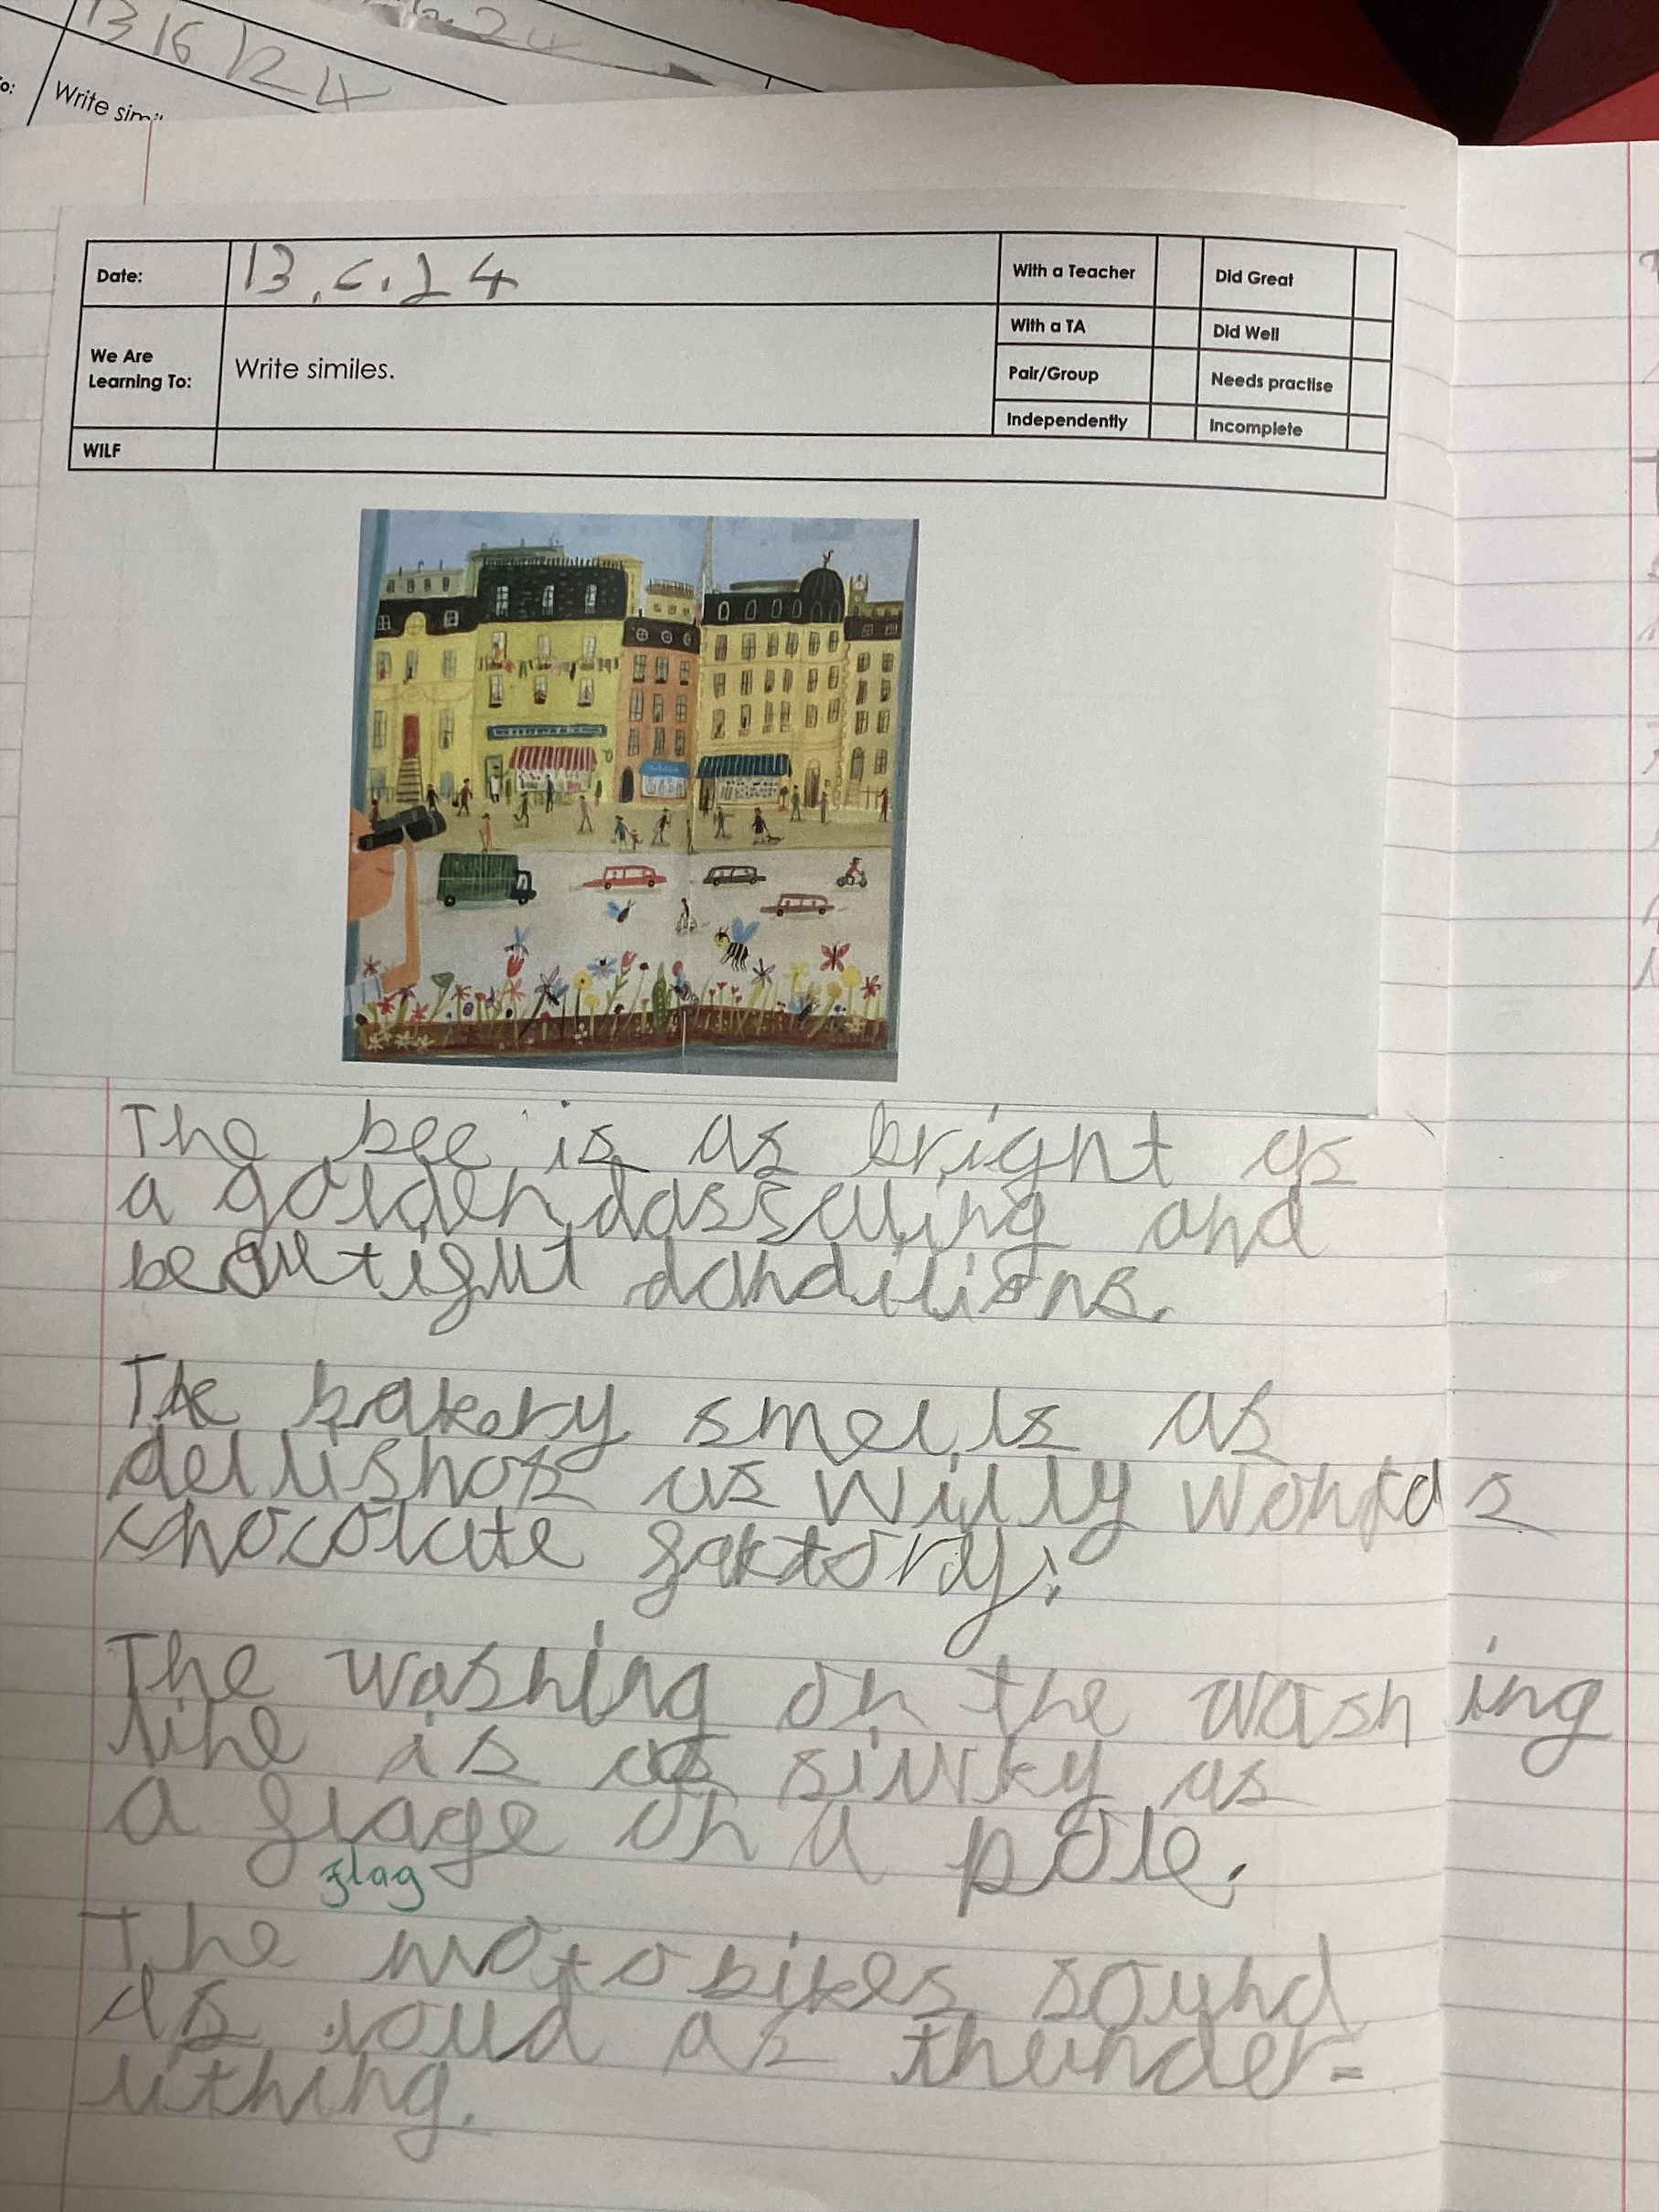 13 16 124
To:
Write simil
24
Date:
13.6.24
With a Teacher
Did Great
We Are
Learning To:
Write similes.
With a TA
Did Well
Pair/Group
Needs practise
Independently
Incomplete
WILF
The bee is as bright as
a golden dasseling and
beautifull dandilions.
The bakery smells as
dellishos as Willy Wonkas
chocolate faktory.
The washing on the washing
line is as silky as
a flage on a pole.
flag
The motobikes sound
as loud as thunder-
lithing.